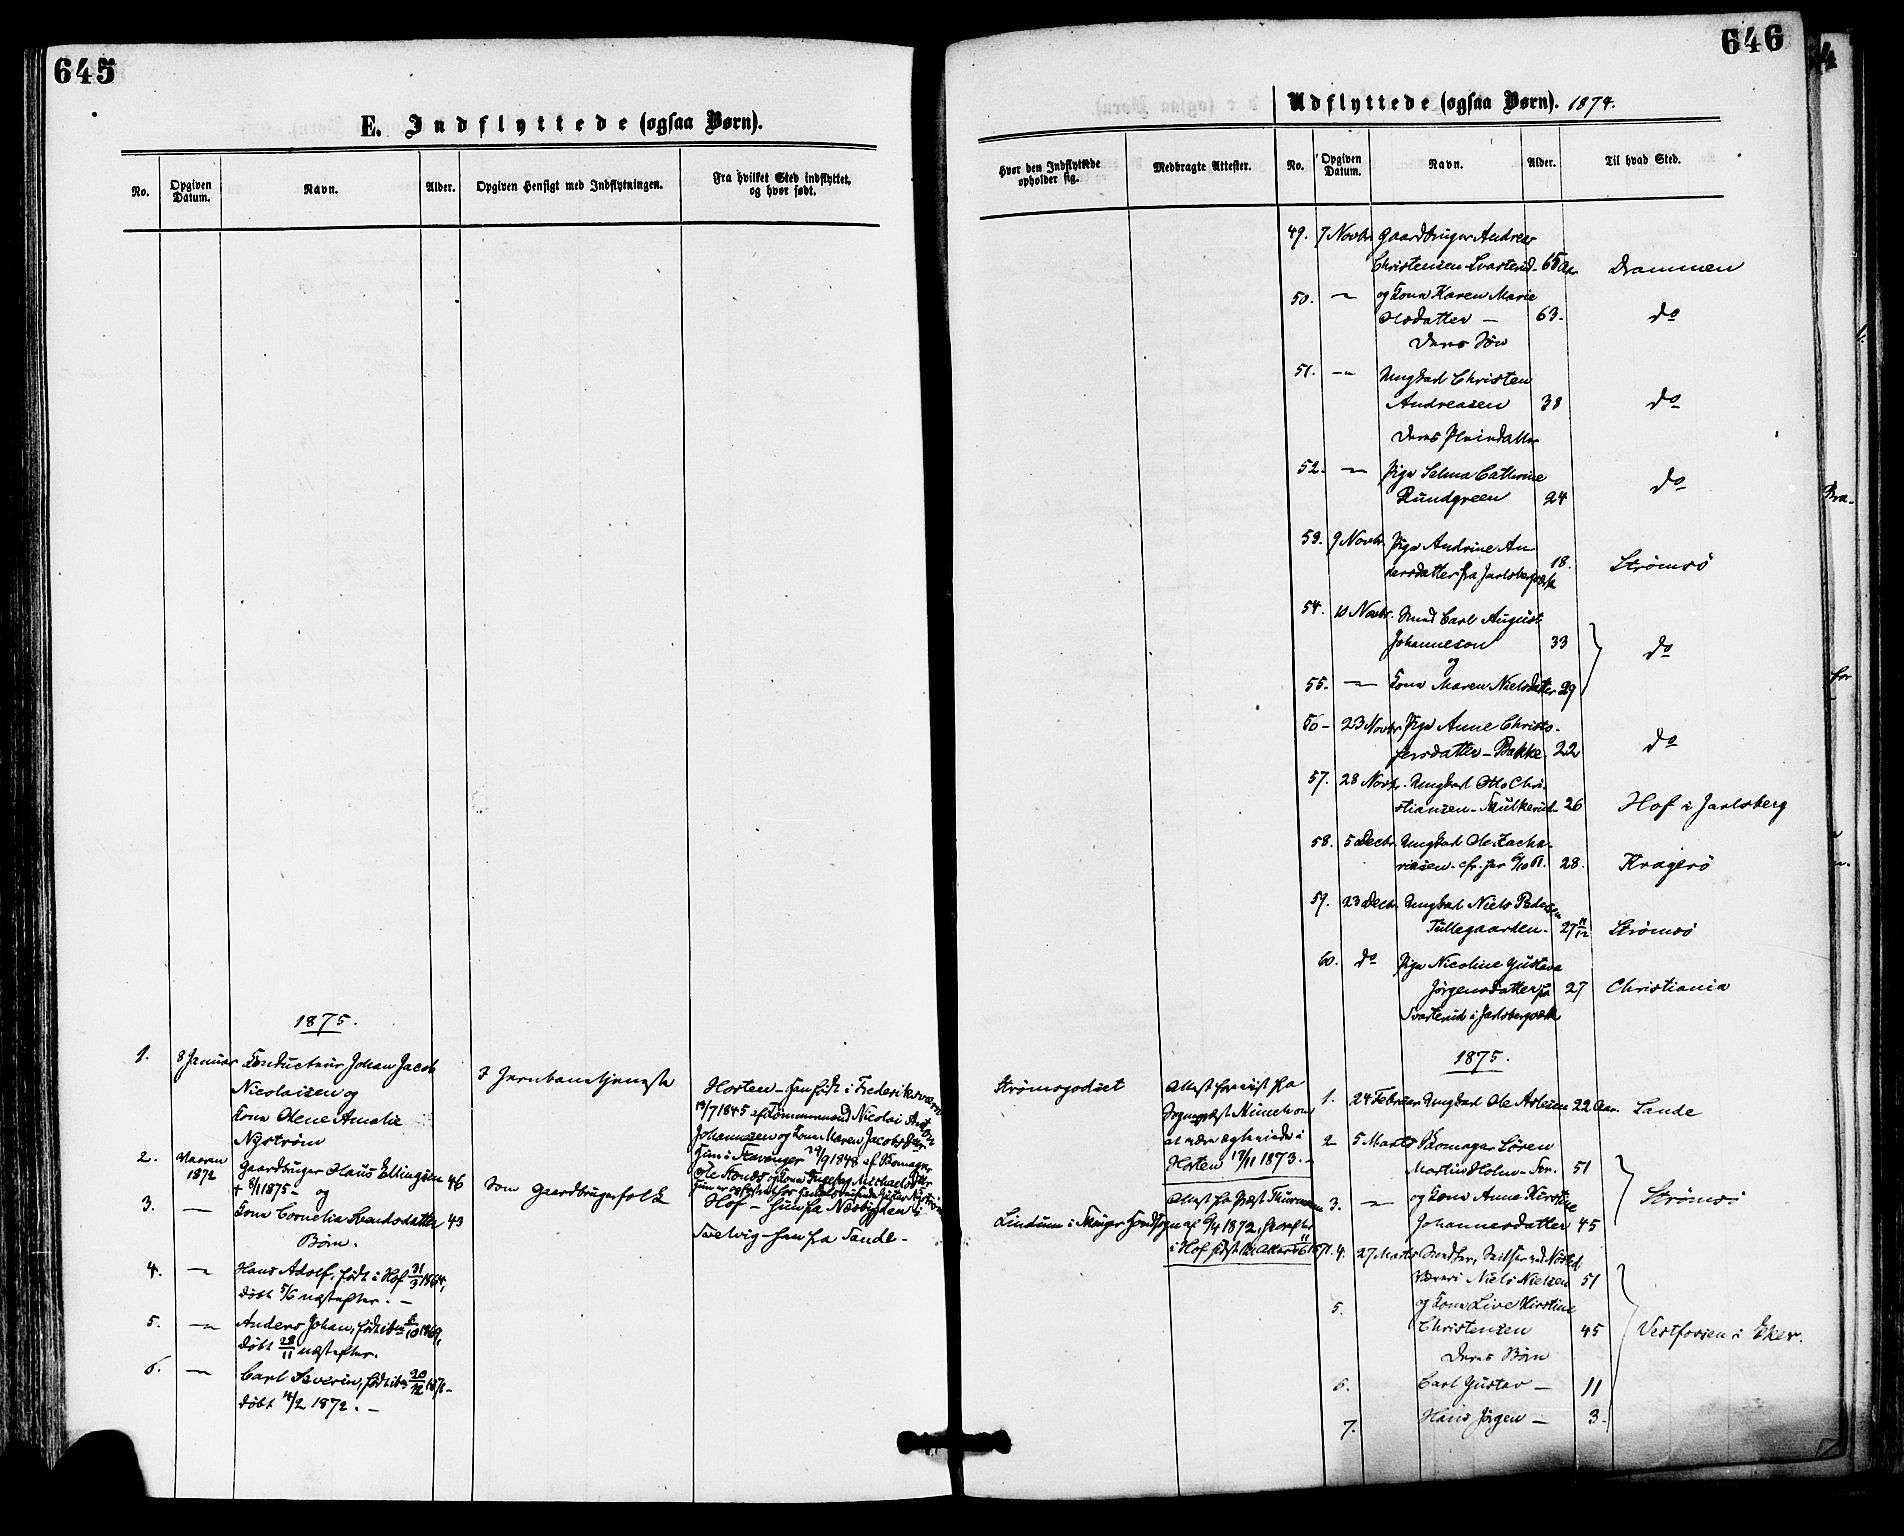 645
E. Indflyttede (ogsaa Børn).
No.
Opgiven Datum.
Navn.
Alder.
Opgiven Hensigt med Indflytningen.
Fra hvilket Sted indflyttet,
og hvor født.
1875.
1. 8 Januar Conducteur Johan Jacob
Nicolaisen og
Kone Olene Amalie
Nystrøm
I Jernbanetjeneste
Horten – han født i Frederiksværn
19/7 1845 af Tømmermand Nicolai
Johannesen og Kone Maren Jacobsdtr
hun i Stavanger 29/9 1848 af
2. Vaaren 1872 Gaardbruger Hans Ellingsen 46
+ 8/1 1875 – og
Som Gaardbrugerfolk
3. – Kone Cornelia Svendsdatter 43
Børn.
Hof – hun fra Næsbygden i
Svelvig – han fra Sande –
4. – Hans Adolf, født i Hof 31/3 1864,
døbt 5/6 næstefter. –
5. – Anders Johan, født ibid 5/10 1869,
døbt 28/11 næstefter.
6. – Carl Severin, født ibid 20/12 1871 –
døbt 4/2 1872. –
646
Udflyttede (ogsaa Børn). 1874.
Hvor den Indflyttede
opholder sig.
Medbragte Attester.
No.
Opgiven Datum.
Navn.
Alder.
Til hvad Sted.
49. 7 Novbr Gaardbruger Andreas
Christensen Svarterud – 65 Aar Drammen
50. – og Kone Karen Marie
Olsdatter – 63. do
Deres Søn
51. – Ungkarl Christen
Andreasen 38 do
Deres Pleiedatter
52. – Pige Selma Cathrine
Rundgreen 24 do
53. 9 Novbr. Pige Andrine An-
dersdatter fra Jarlsberg 18. Strømsö
54. 10 Novbr. Smed Carl August
Johanneson 33
og do
55. – Kone Maren Nielsdatter 29
56 – 23 Novbr. Pige Anne Christo-
fersdatter – Bakke. 22 do
57. 28 Novbr. Ungkarl Otto Chri-
stiansen – Mulkerud – 26 Hof i Jarlsberg
58. 5 Decbr. Ungkarl Ole Zacha-
riesen – 28. Kragerö
59. 23 Decbr. Ungkarl Niels Pedersen
Tullegaarden – 27 11/12 Strømsö
60. do Pige Nicoline Gustava
Jørgensdatter fra 27 Christiania
Svarterud i Jarlsberg
1875.
Strømsgodset
Attest fra
Sognepræst Münch om
at være ægteviede i
Horten 13/11 1873. –
1. 24 Februar Ungkarl Ole Axlesen 22 Aar Sande
2 5 Marts Skomager Søren
Martin Holm – Sen. 51
3. – og Kone Anne Kirstine
Johannesdatter 45 Strømsö
Lindum i Skouger Hovedsogn
Attest fra Præst Thurmann
af 6/4 1872,
4. 27 Marts
Værns Niels Nielsen 51
5. og Kone Live Kirstine
Christensen 45 Vestfossen i Eker.
Deres Børn
6. Carl Gustav – 11
7. Hans Jørgen – 3.